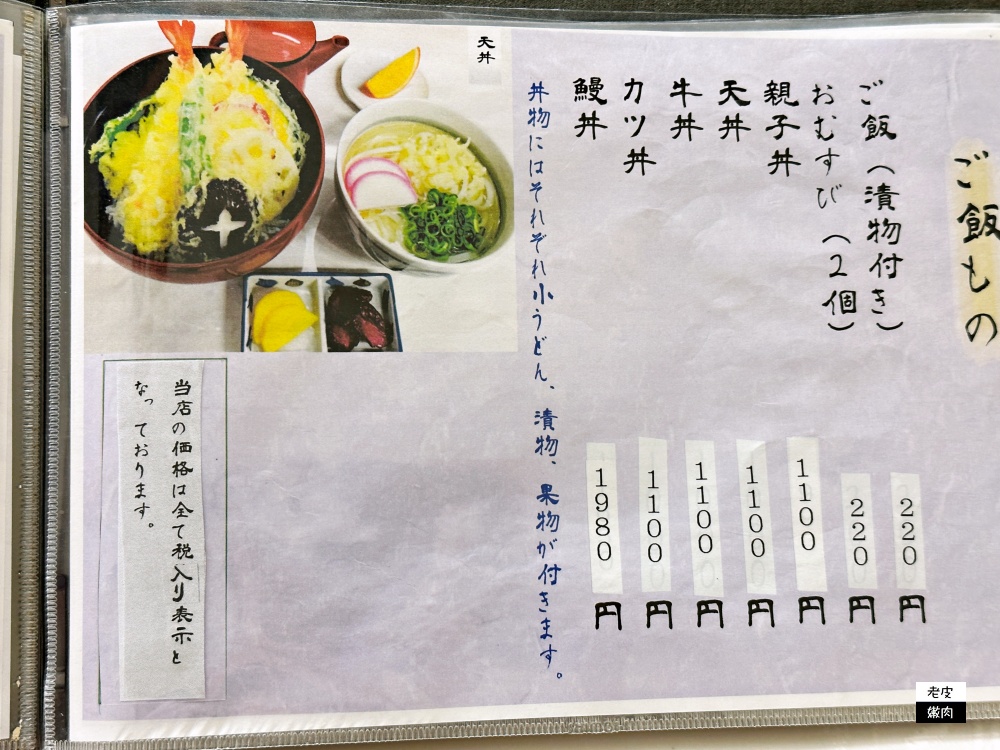 ご飯もの
ご飯（漬物付き）
220円
おむすび（2個）
220円
親子丼
1100円
天丼
1100円
牛丼
1100円
カツ丼
1100円
鰻丼
1980円
丼物にはそれぞれ小うどん、漬物、果物が付きます。
天丼
当店の価格は全て税入り表示と
なっております。
老皮
嫩肉